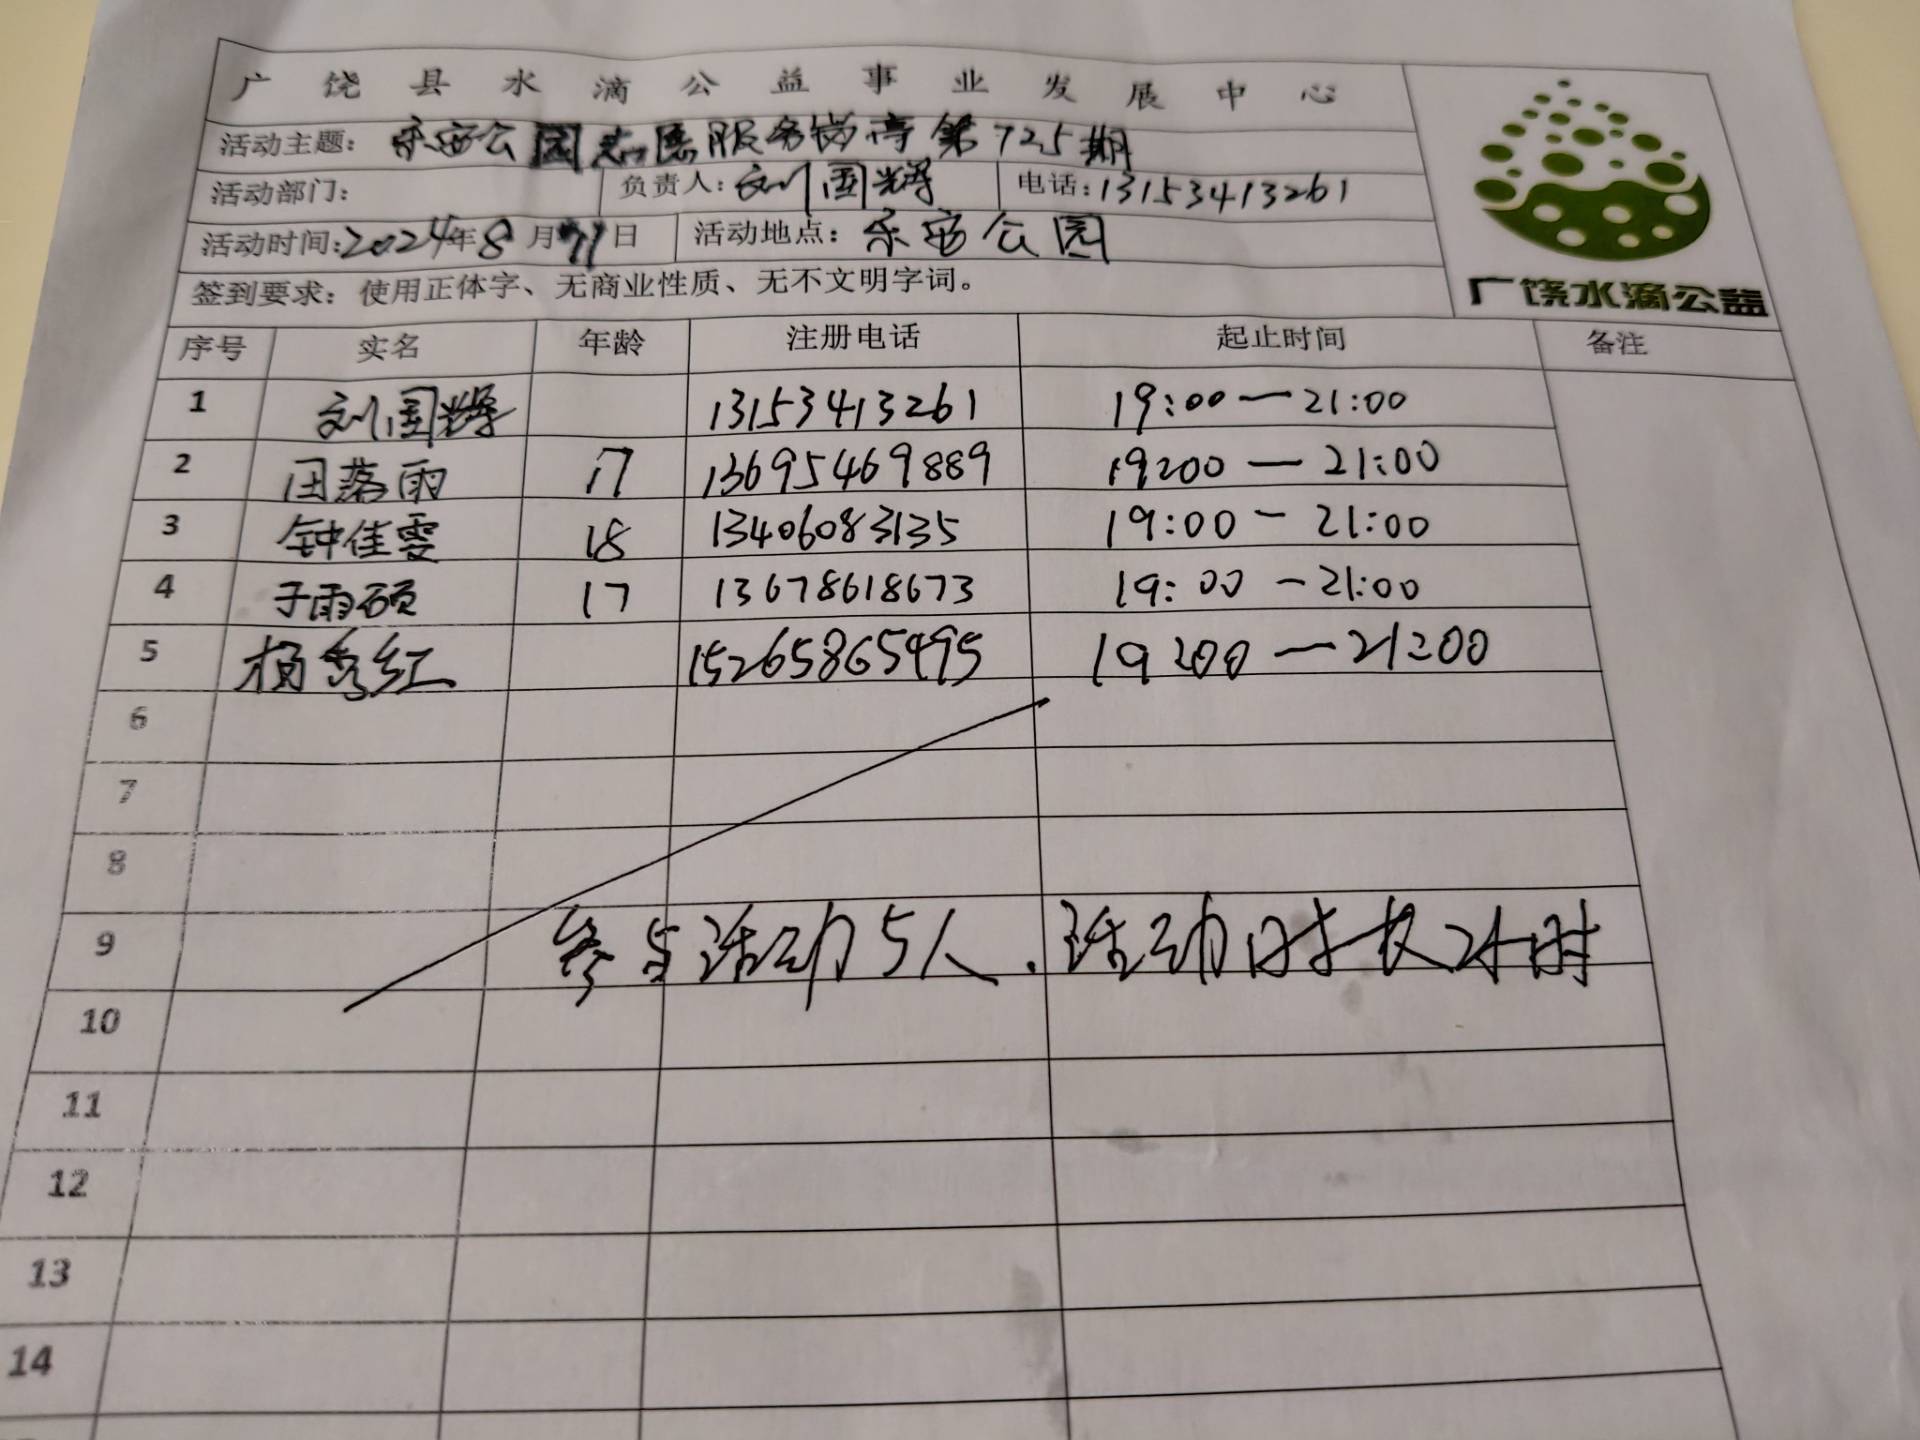 广饶县水滴公益事业发展中心
活动主题：乐安公园志愿服务岗亭第725期
活动部门： 负责人：刘国辉 电话：13153413261
活动时间：2024年8月11日 活动地点：乐安公园
签到要求：使用正体字、无商业性质、无不文明字词。
广饶水滴公益
序号 实名 年龄 注册电话 起止时间 备注
1 刘国辉 13153413261 19:00—21:00
2 田落雨 17 13695469889 19:00—21:00
3 钟佳雯 18 13406083135 19:00-21:00
4 于雨硕 17 13678618673 19:00-21:00
5 杨秀红 15265865495 19:00—21:00
6
7
8
9 参与活动5人.活动时长2小时
10
11
12
13
14